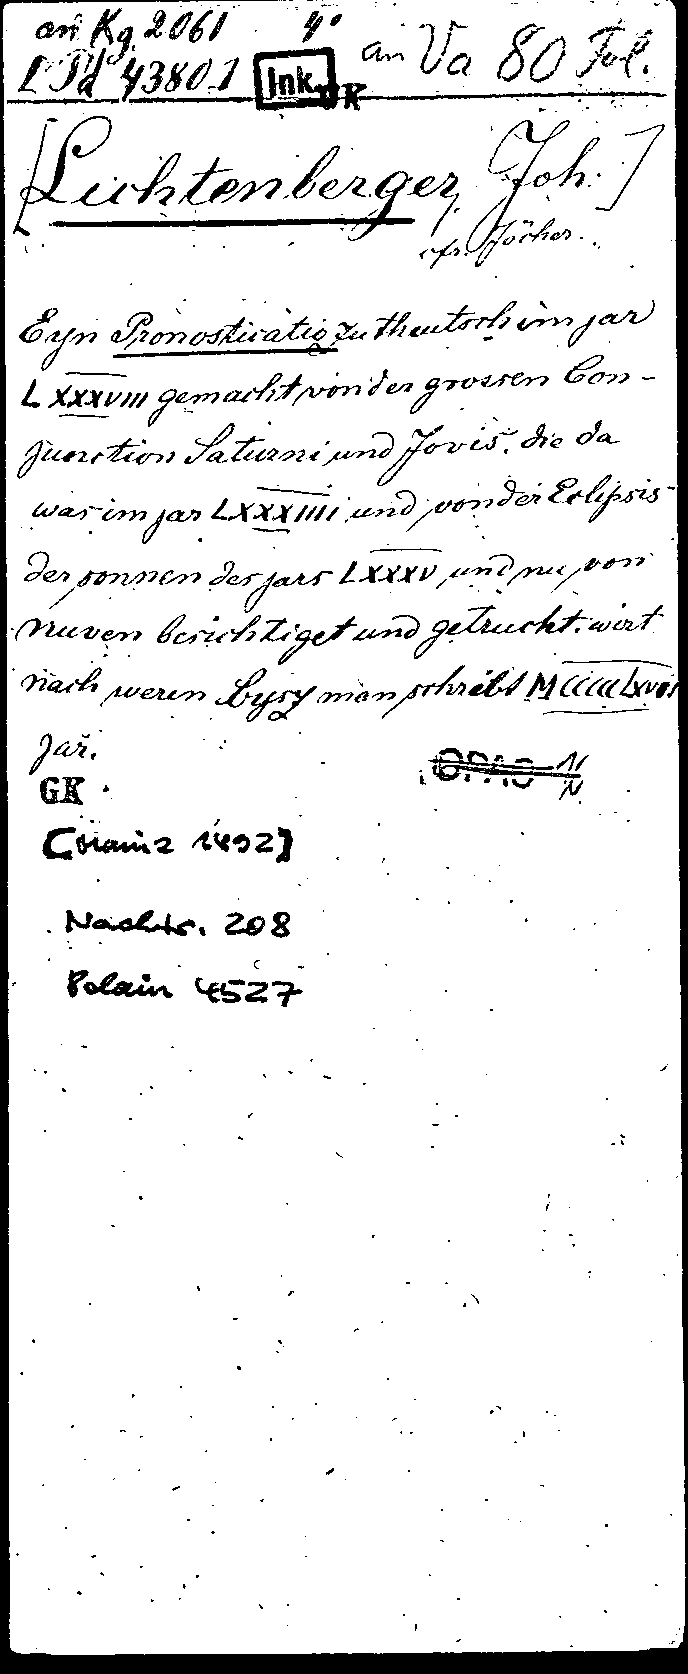 an Kg 2061 4°
an Va 80 Fol.
Pd 4380.1 Ink. K
[Lichtenberger, Joh.]
cfr. Jöcher.
Eyn Pronosticatio zu theutsch im jar
LXXXVIII gemacht von der grossen Con-
junction Saturni und Jovis. die da
was im jar LXXXIIII und von der Eclipsis
der sonnen des jars LXXXV und nu von
nuven besichtiget und getruckt. wirt
nach weren bysz man schribt MCCCCLXVII
jar.
GK
OPAC
[Mainz 1492]
Nachtr. 208
Polain 4527